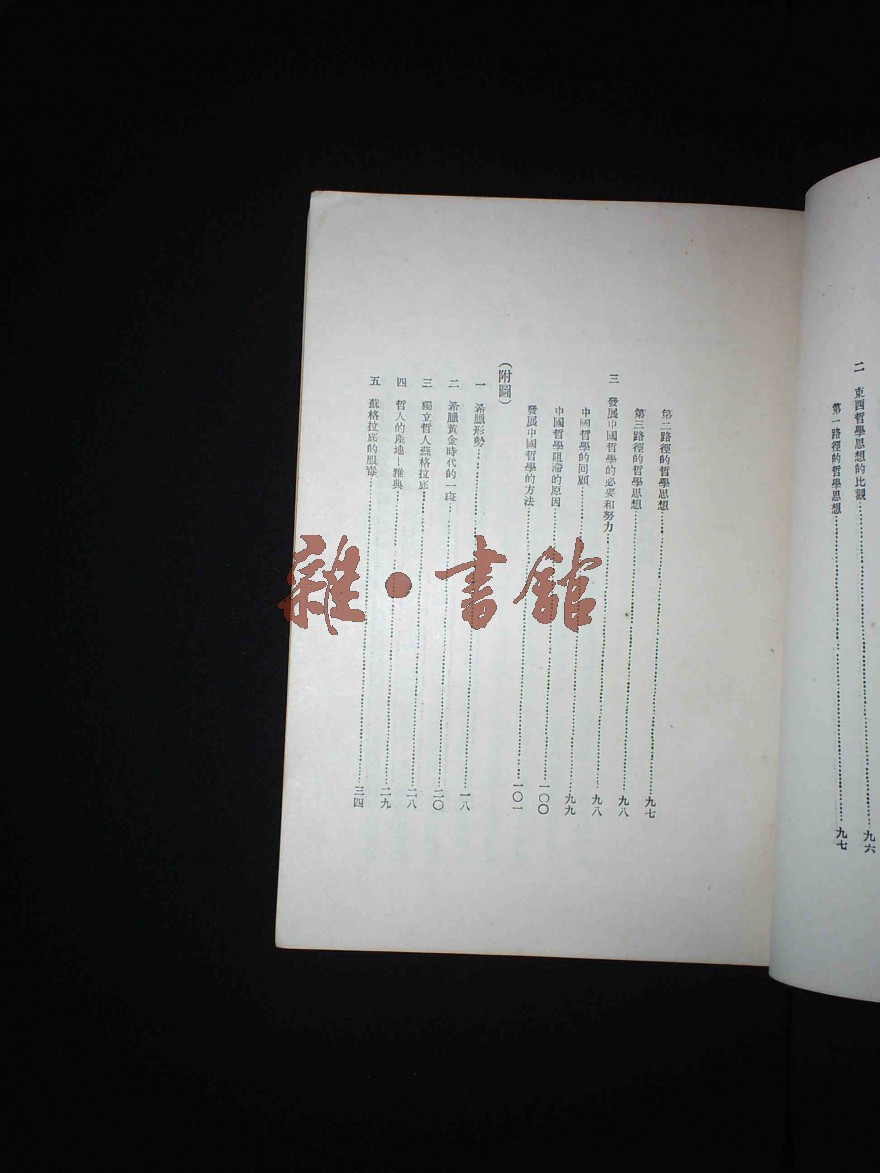 二 東西哲學思想的比觀……九六
第一路徑的哲學思想……九七
第二路徑的哲學思想……九七
第三路徑的哲學思想……九八
三 發展中國哲學的必要和努力……九八
中國哲學的回顧……九九
中國哲學阻滯的原因……一〇〇
發展中國哲學的方法……一〇一
(附圖)
一 希臘形勢……一八
二 希臘黃金時代的一斑……二〇
三 獨立哲人蘇格拉底……二八
四 哲人的產地—雅典……二九
五 蘇格拉底的服毒……三四
雜·書館